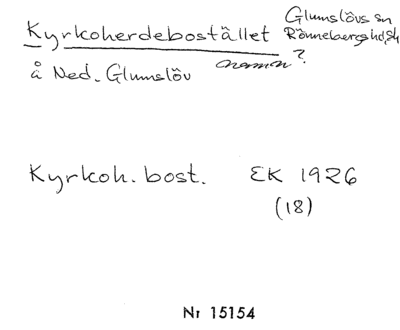 Kyrkoherdebostället
Glumslövs sn
Rönnebergs hd, Sk
å Ned. Glumslöv
namn ?
Kyrkoh. bost. EK 1926
(18)
Nr 15154